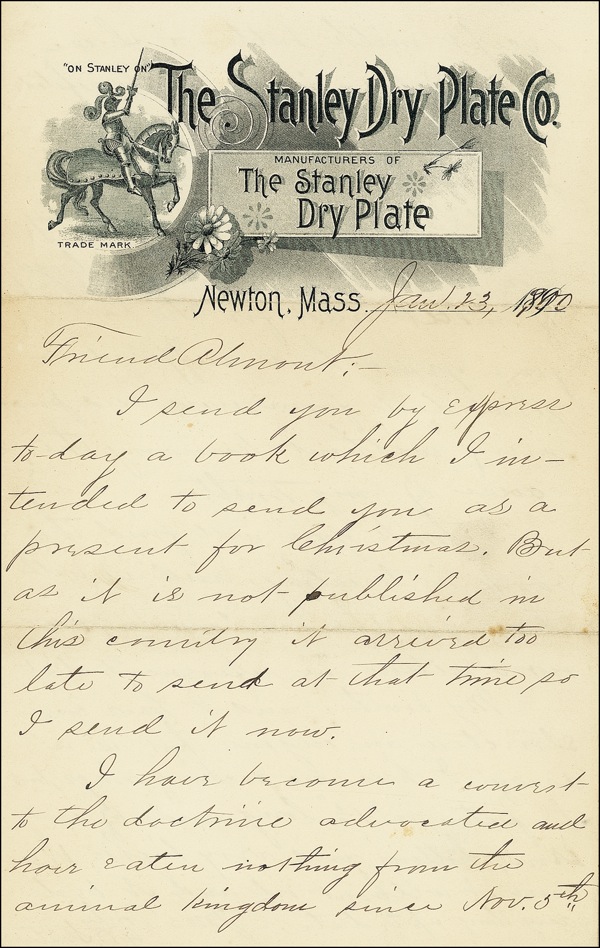 "ON STANLEY ON"
The Stanley Dry Plate Co.
MANUFACTURERS OF
The Stanley
Dry Plate
TRADE MARK
Newton, Mass. Jan. 23, 1890
Friend Almont;—
I send you by express
to-day a book which I in-
tended to send you as a
present for Christmas. But
as it is not published in
this country it arrived too
late to send at that time so
I send it now.
I have become a convert
to the doctrine advocated and
have eaten nothing from the
animal kingdom since Nov. 5th.